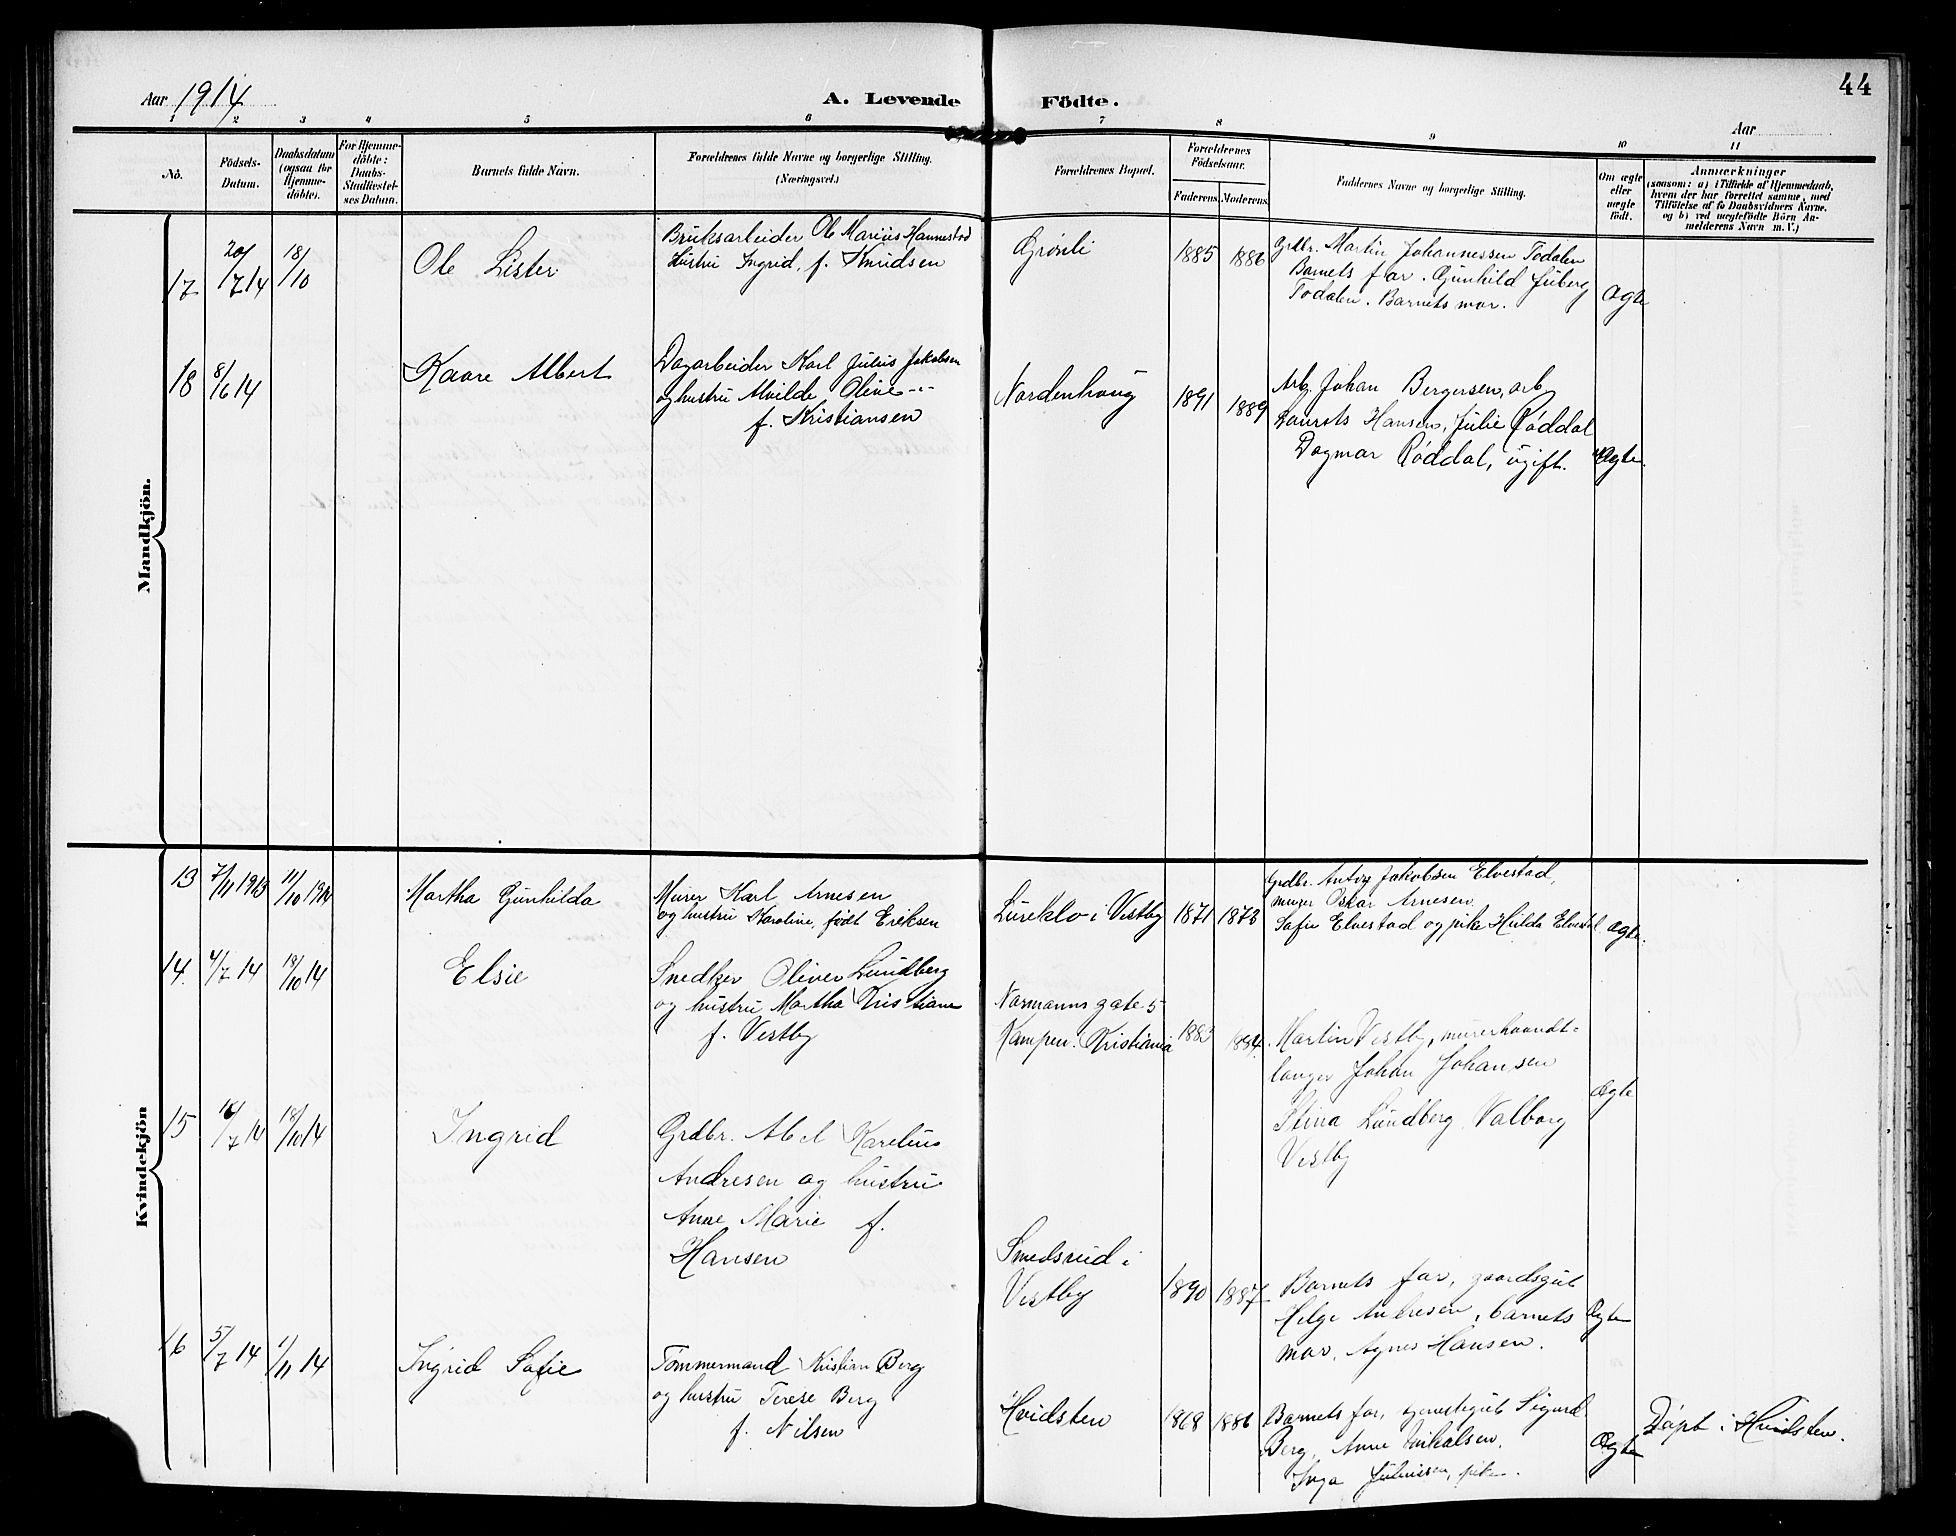 44
Aar 1914
A. Levende Födte.
Aar
1 2 3 4 5 6 7 8 9 10 11
No.
Födsels-Datum.
Daabsdatum (ogsaa for Hjemme-döbte).
For Hjemme-döbte: Daabs-Stadfæstel-ses Datum.
Barnets fulde Navn.
Forældrenes fulde Navne og borgerlige Stilling. (Næringsvei.)
Forældrenes Bopæl.
Forældrenes Födselsaar.
Faderens. Moderens.
Faddernes Navne og borgerlige Stilling.
Om ægte eller uægte födt.
Anmærkninger
(saasom: a) i Tilfælde af Hjemmedaab,
hvem der har forrettet samme, med
Tilföielse af to Daabsvidners Navne,
og b) ved uægtefödte Börn An-
melderens Navn m. V.)
Mandkjön.
17 20/7 14 18/10 Ole Lister
Bruksarbeider Ole Marius Hannestad
Hustru Ingrid, f. Knudsen
Grönli 1885 1886
Grdbr. Martin Johannessen Todalen
Barnets far. Gunhild Juberg
Todalen. Barnets mor.
Ægte
18 8/6 14 Kaare Albert
Dagarbeider Karl Julius Jakobsen
og hustru Alvilde Olive
f. Kristiansen
Nordenhaug 1891 1889
Arb. Johan Bergersen, arb
Laurets Hansen, Julie Røddal
Dagmar Røddal, ugift.
Ægte.
Kvindekjön
13 7/11 1913 11/10 1914 Martha Gunhilda
Murer Karl Arnesen
og hustru Karoline, født Eriksen
Lureklo i Vestby 1871 1873
Grdbr. Anton Jakobsen Elvestad,
murer Oskar Arnesen.
Safie Elvestad og pike Hulda Elvestad
Ægte.
14. 4/7 14 18/10 14 Elsie
Snedker Oliver Lundberg
og hustru Martha Kristiane
f. Vestby
Normanns gate 5
Kampen. Kristiania 1883 1884.
Martin Vestby, murerhaandt-
langer Johan Johansen
Stina Lundberg Valborg
Vestby
Ægte
15 /7 14 18/10 14 Ingrid
Grdbr. Abel Karelius
Andresen og hustru
Anne Marie f.
Hansen
Smedsrud i
Vestby 1890 1887
Barnets far, gaardsgut
Helge Andresen, barnets
mor, Agnes Hansen.
Ægte
16 5/7 14 1/11 14 Ingrid Safie
Tømmermand Kristian Berg
og hustru Terese Berg
f. Nilsen
Hvidsten 1868 1886
Barnets far, Sigurd
Berg, Anne
Inga Juliussen, pike.
Ægte
Døpt i Hvidsten.